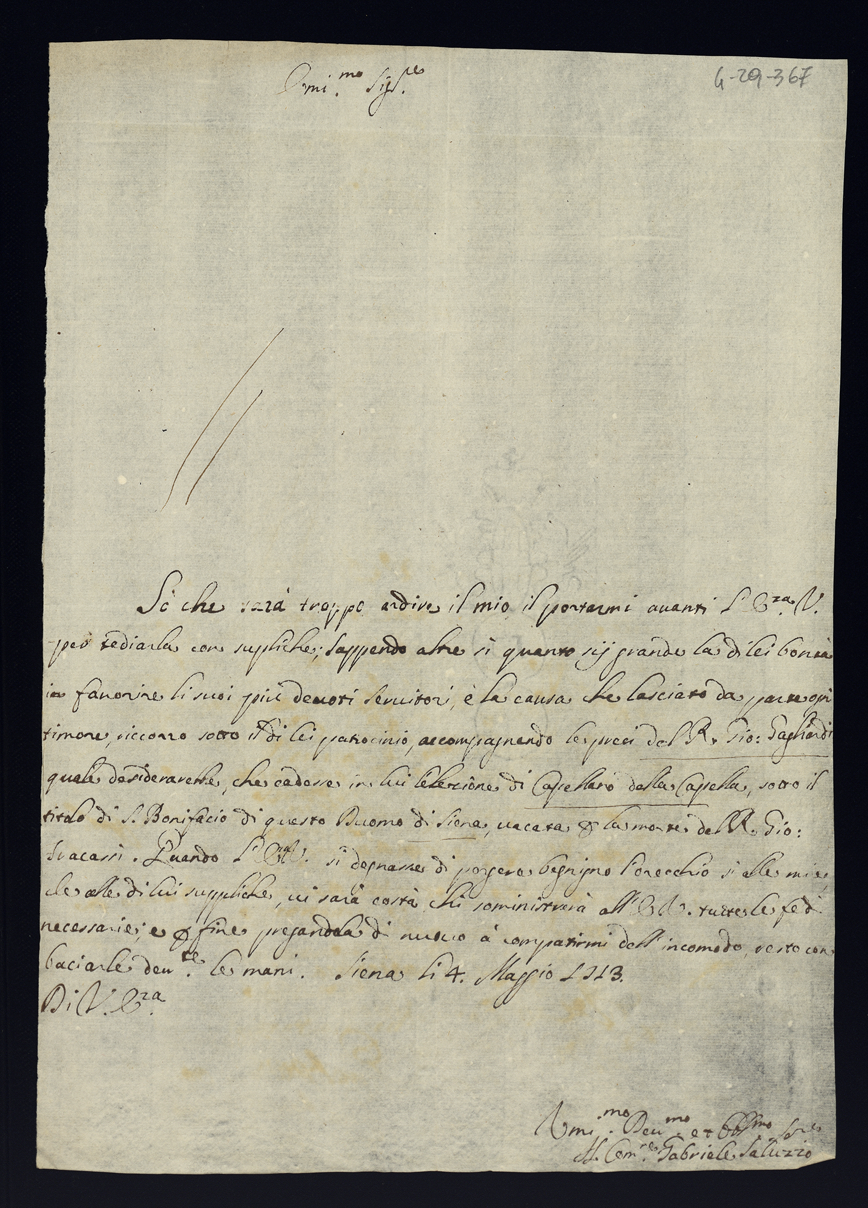 4-29-367
Emi.mo Sig.re
Sò che sarà troppo ardire il mio il portarmi auanti l'E.za V.
per tediarla con supliche; Sappendo altre sì quanto sij grande la di lei bontà
in fauorire li suoi più deuoti Seruitori, è la causa che lasciato da parte ogni
timore, riccorro sotto il di lei patrocinio, accompagnando le preci del R. Gio: Gagliardi
quale desiderarebbe, che cadesse in lui l'elezione di Capellano della Capella, sotto il
titolo di S. Bonifacio di questo Duomo di Siena, uacata p la morte del R. Gio:
Quando l'E.V. si degnasse di porgere begnigno l'orecchio sì alle mie,
che alle di lui suppliche, ui sarà costà chi soministrerà all'E.V. tutte le fedi
necessarie; e p fine pregandola di nuouo à compatirmi dell'incomodo, resto con
baciarle deu.te le mani. Siena li 4. Maggio 1713.
Di V. E.za
Umi.mo Deu.mo et Obb.mo Ser.re
Gabriele Saluzzo